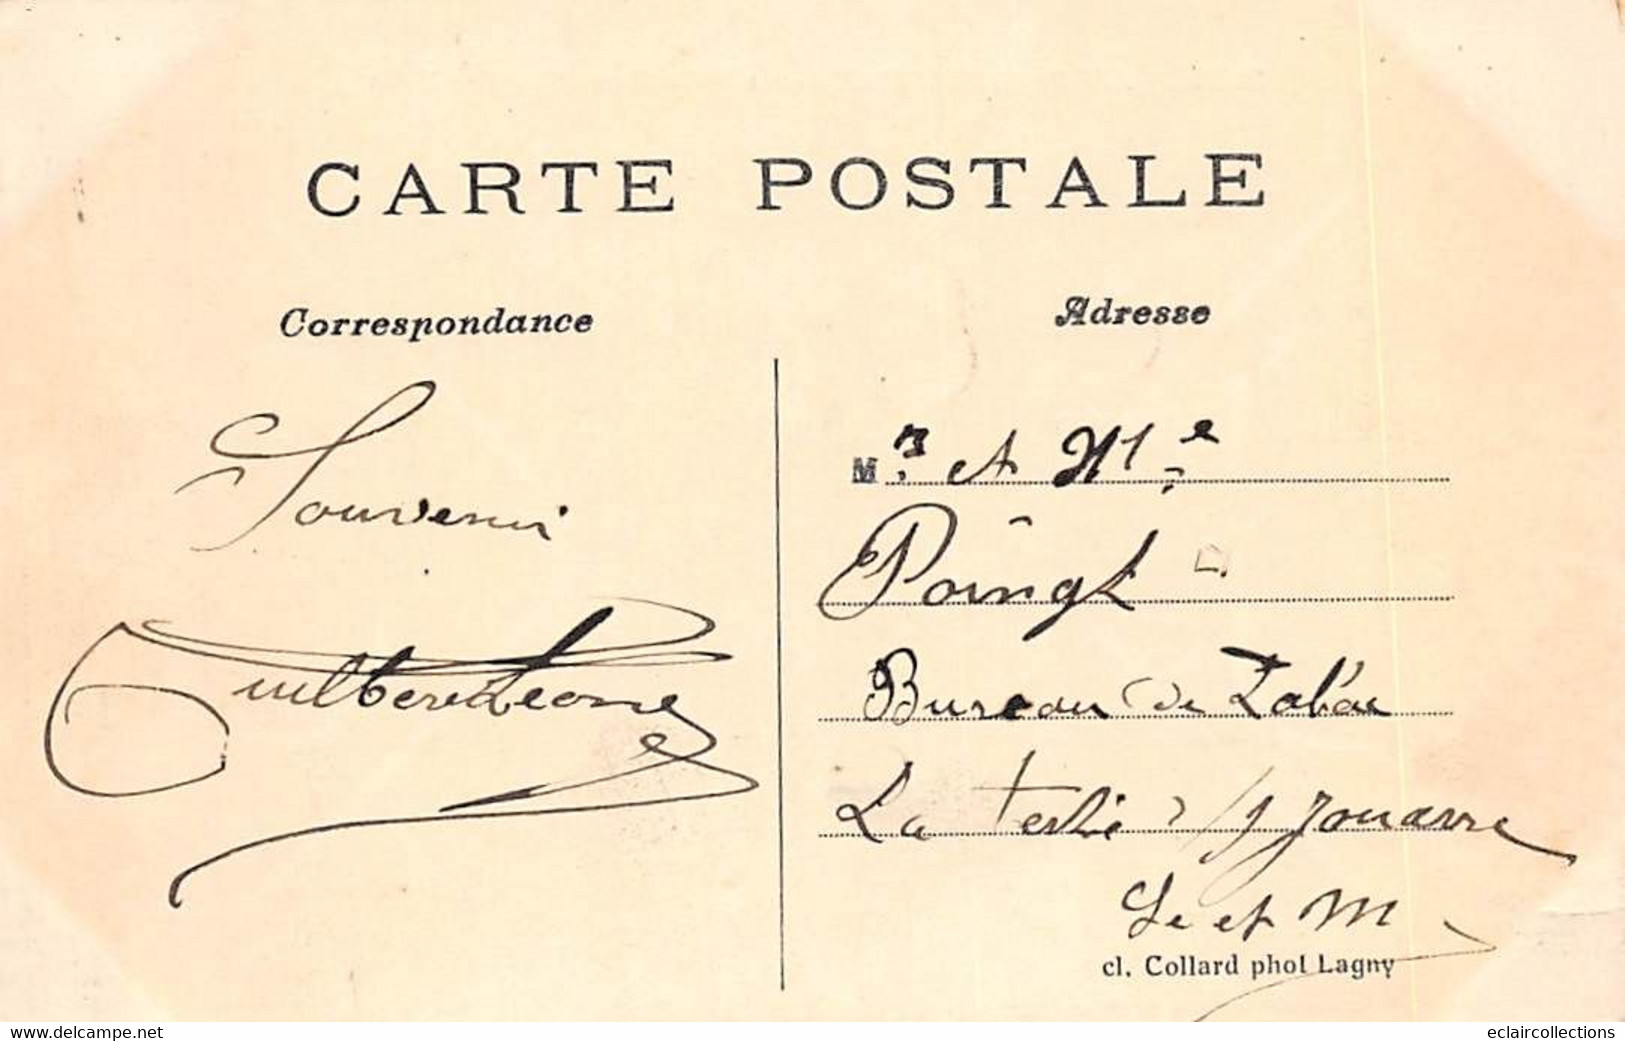 CARTE POSTALE
Correspondance
Adresse
Souvenir
Guilbert Leone
Mr. et Me
Poingt
Bureau de Tabac
La ferté s/ Jouarre
Se et M
cl. Collard phot Lagny
www.delcampe.net
eclaircollections